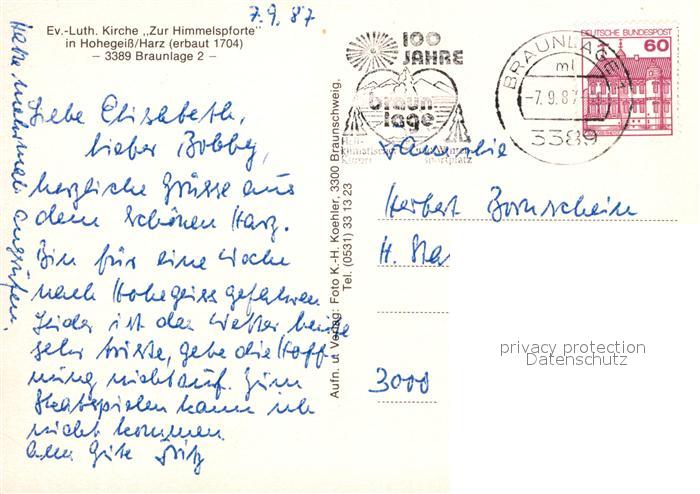 7.9.87
Ev.-Luth. Kirche „Zur Himmelspforte"
in Hohegeiß/Harz (erbaut 1704)
– 3389 Braunlage 2 –
Liebe Elisabeth,
lieber Bobby,
herzliche Grüsse aus
dem schönen Harz.
Bin für eine Woche
nach Hohegeiss gefahren
Leider ist das Wetter heute
sehr trübe, gebe die Hoff
nung nicht auf. Zum
Skatspielen kann ich
nicht kommen.
Alles Gute Fritz
mehrmals angerufen.
Aufn. u. Verlag: Foto K.-H. Koehler, 3300 Braunschweig,
Tel. (0531) 33 13 23
100
JAHRE
braun
lage
BRAUNLAGE 1
ml
-7.9.87
3389
DEUTSCHE BUNDESPOST
60
Familie
Herbert Bornschein
H. Sta
3000
privacy protection
Datenschutz